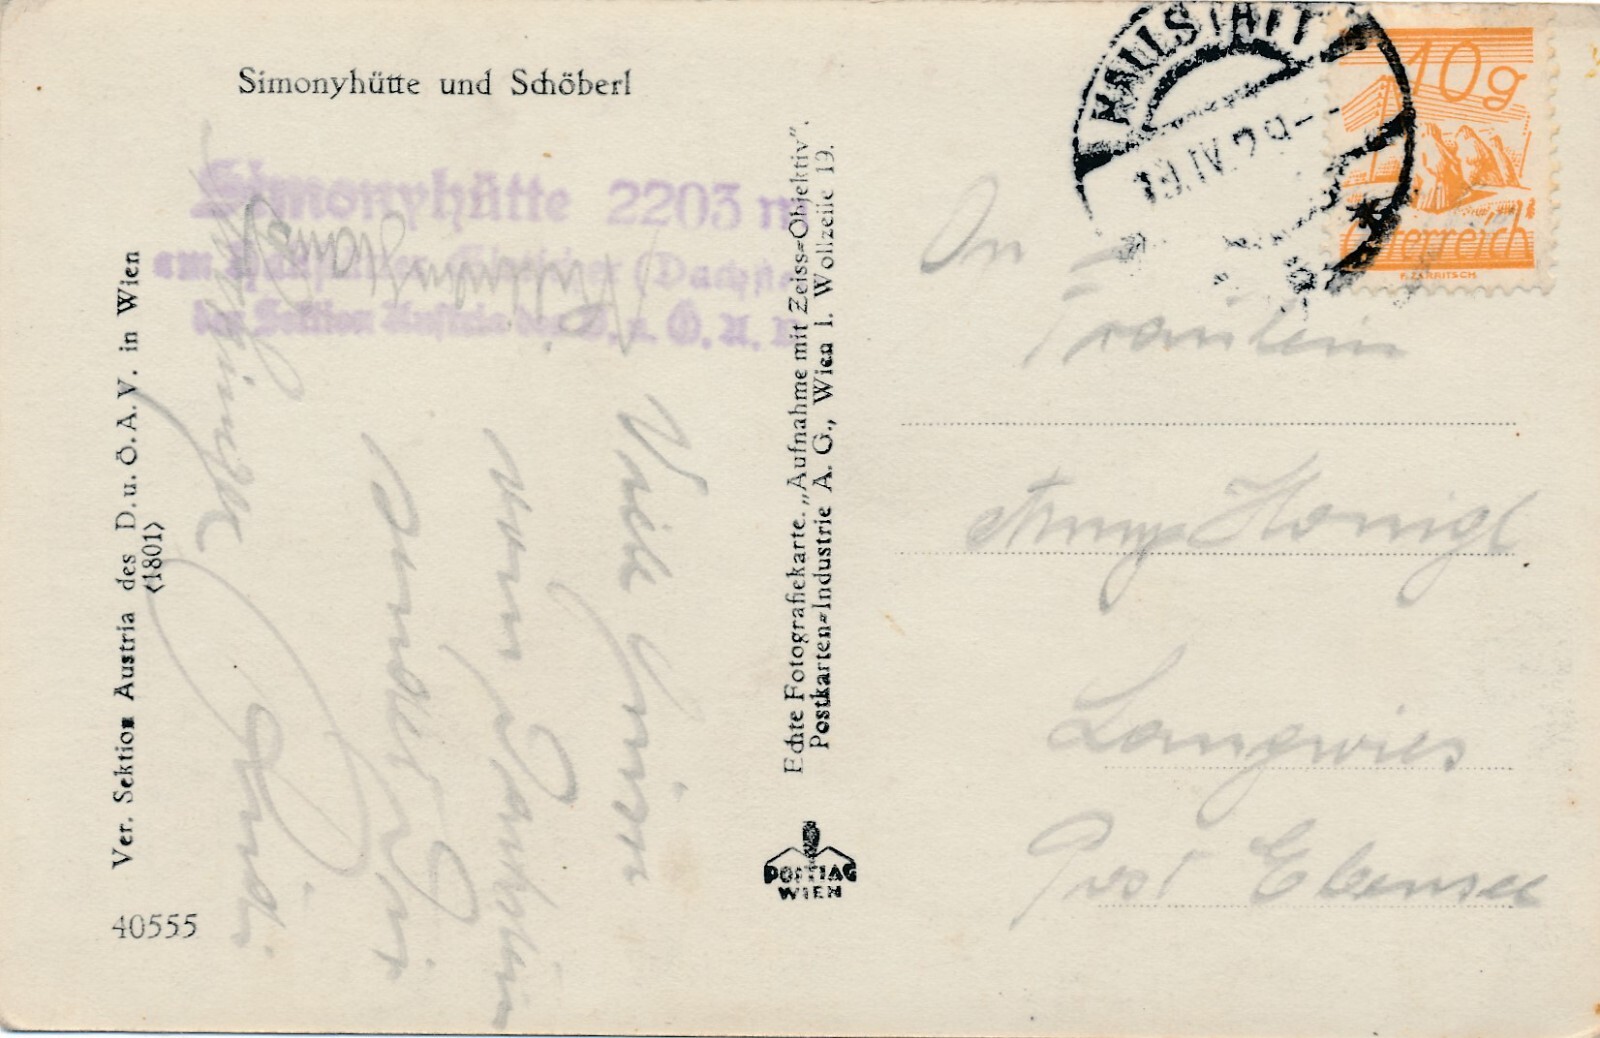 Simonyhütte und Schöberl
Simonyhütte 2203 m
am Hallstätter Gletscher (Dachste
der Sektion Austria des D. u. Ö. A. V.
Ver. Sektion Austria des D. u. Ö. A. V. in Wien
<1801>
40555
Viele Grüsse
vom Dachstein
sendet Dir
Echte Fotografiekarte. „Aufnahme mit Zeiss-Objektiv".
Postkarten-Industrie A. G., Wien I. Wollzeile 19.
POSTIAG
WIEN
HALLSTATT
19.IV.29
10g
Österreich
An
Fräulein
Anny Königl
Langwies
Post Ebensee